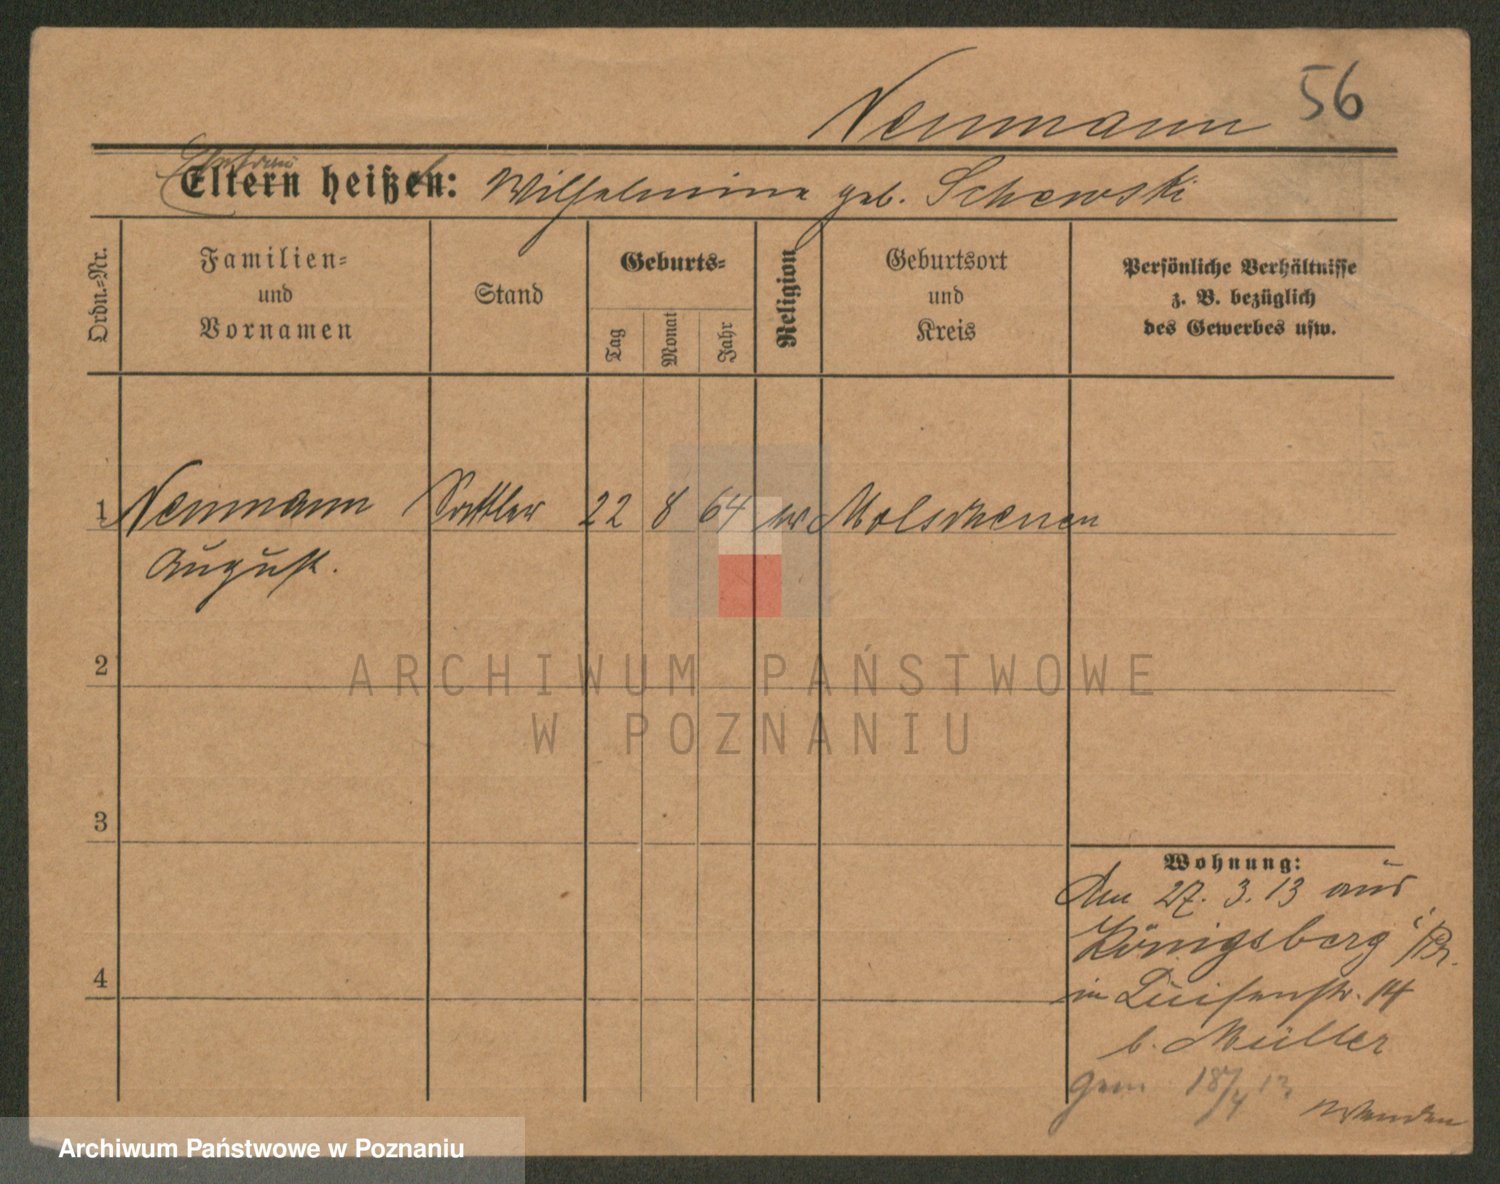 56
Neumann
Ehefrau
Eltern heißen: Wilhelmine geb. Schewski
Ordn.-Nr.
Familien-
und
Vornamen
Stand
Geburts-
Tag
Monat
Jahr
Religion
Geburtsort
und
Kreis
Persönliche Verhältnisse
z. B. bezüglich
des Gewerbes usw.
1 Neumann Sattler 22 8 64 ev Molsehnen
August.
2
3
4
Wohnung:
Am 27. 3. 13 aus
Königsberg i/Pr.
in Luisenstr. 14
b. Müller
gem 18/4 13.
Wenden
ARCHIWUM PAŃSTWOWE
W POZNANIU
Archiwum Państwowe w Poznaniu